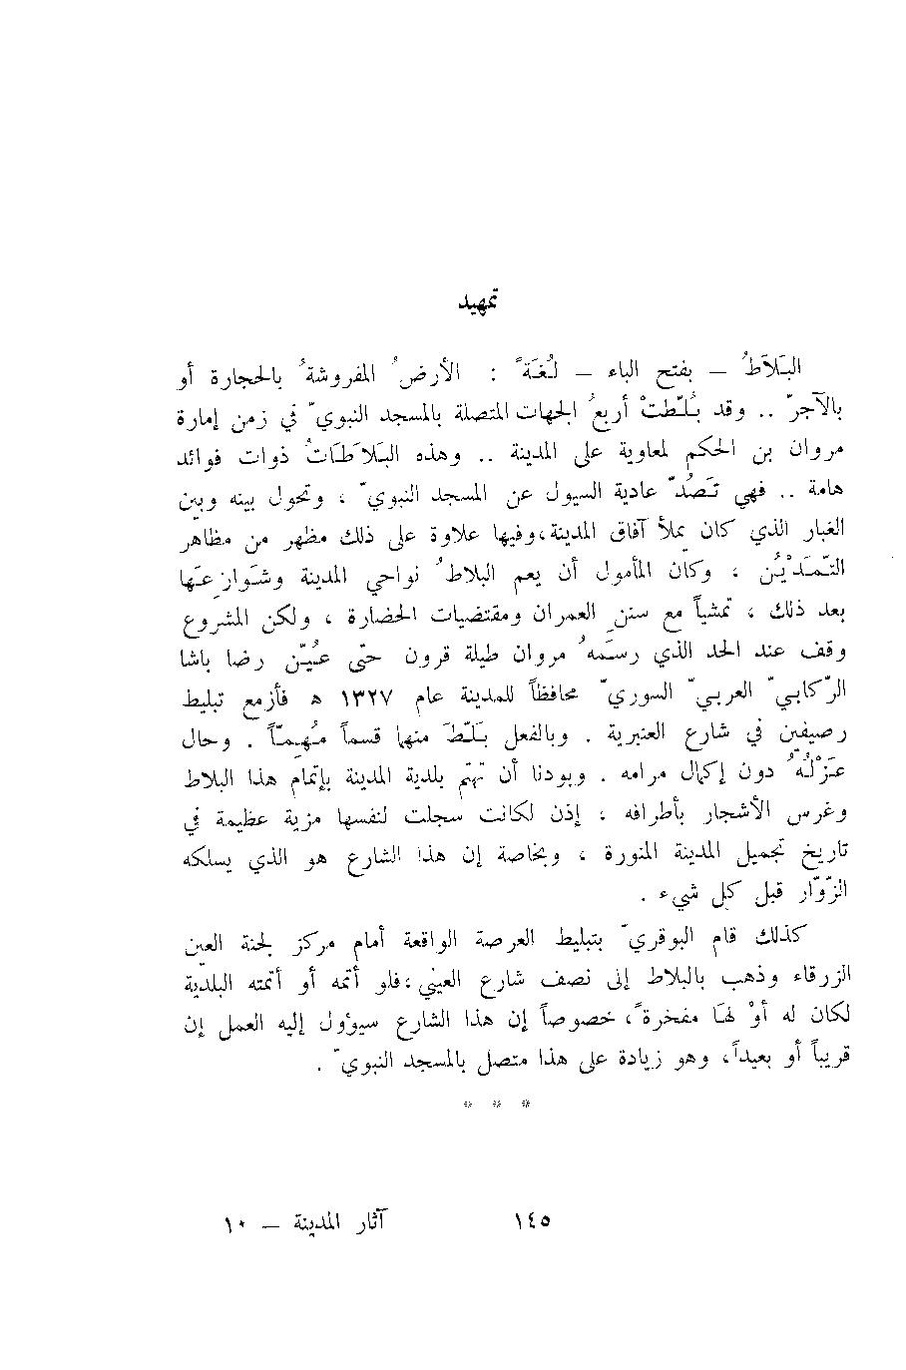 تمهيد
البَلاَطُ – بفتح الباء – لُغَةً : الأرضُ المفروشةُ بالحجارة أو
بالآجرّ .. وقد بُلّطتْ أربعُ الجهات المتصلة بالمسجد النبويّ في زمن إمارة
مروان بن الحكم لمعاوية على المدينة .. وهذه البَلاَطَاتُ ذوات فوائد
هامة .. فهي تَصُدّ عادية السيول عن المسجد النبويّ ، وتحول بينه وبين
الغبار الذي كان يملأ آفاق المدينة،وفيها علاوة على ذلك مظهر من مظاهر
التّمَدْيُن ، وكان المأمول أن يعم البلاطُ نواحي المدينة وشَوارِعَها
بعد ذلك ، تمشياً مع سنن العمران ومقتضيات الحضارة ، ولكن المشروع
وقف عند الحد الذي رسَمهُ مروان طيلة قرون حتّى عُيّن رضا باشا
الرّكابيّ العربيّ السوريّ محافظاً للمدينة عام ١٣٢٧ ه فأزمع تبليط
رصيفين في شارع العنبرية . وبالفعل بَلّطَ منهما قسماً مُهِمّاً . وحال
عَزْلُهُ دون إكمال مرامه . وبودنا أن تهتم بلدية المدينة بإتمام هذا البلاط
وغرس الأشجار بأطرافه ، إذن لكانت سجلت لنفسها مزية عظيمة في
تاريخ تجميل المدينة المنورة ، وبخاصة إن هذا الشارع هو الذي يسلكه
الزّوّار قبل كل شيء .
كذلك قام البوقريّ بتبليط العرصة الواقعة أمام مركز لجنة العين
الزرقاء وذهب بالبلاط إلى نصف شارع العيني ،فلو أتمه أو أتمته البلديّة
لكان له أوْ لهَا مفخرةً، خصوصاً إن هذا الشارع سيؤول إليه العمل إن
قريباً أو بعيداً، وهو زيادة على هذا متصل بالمسجد النبويّ .
* * *
١٤٥ آثار المدينة – ١٠